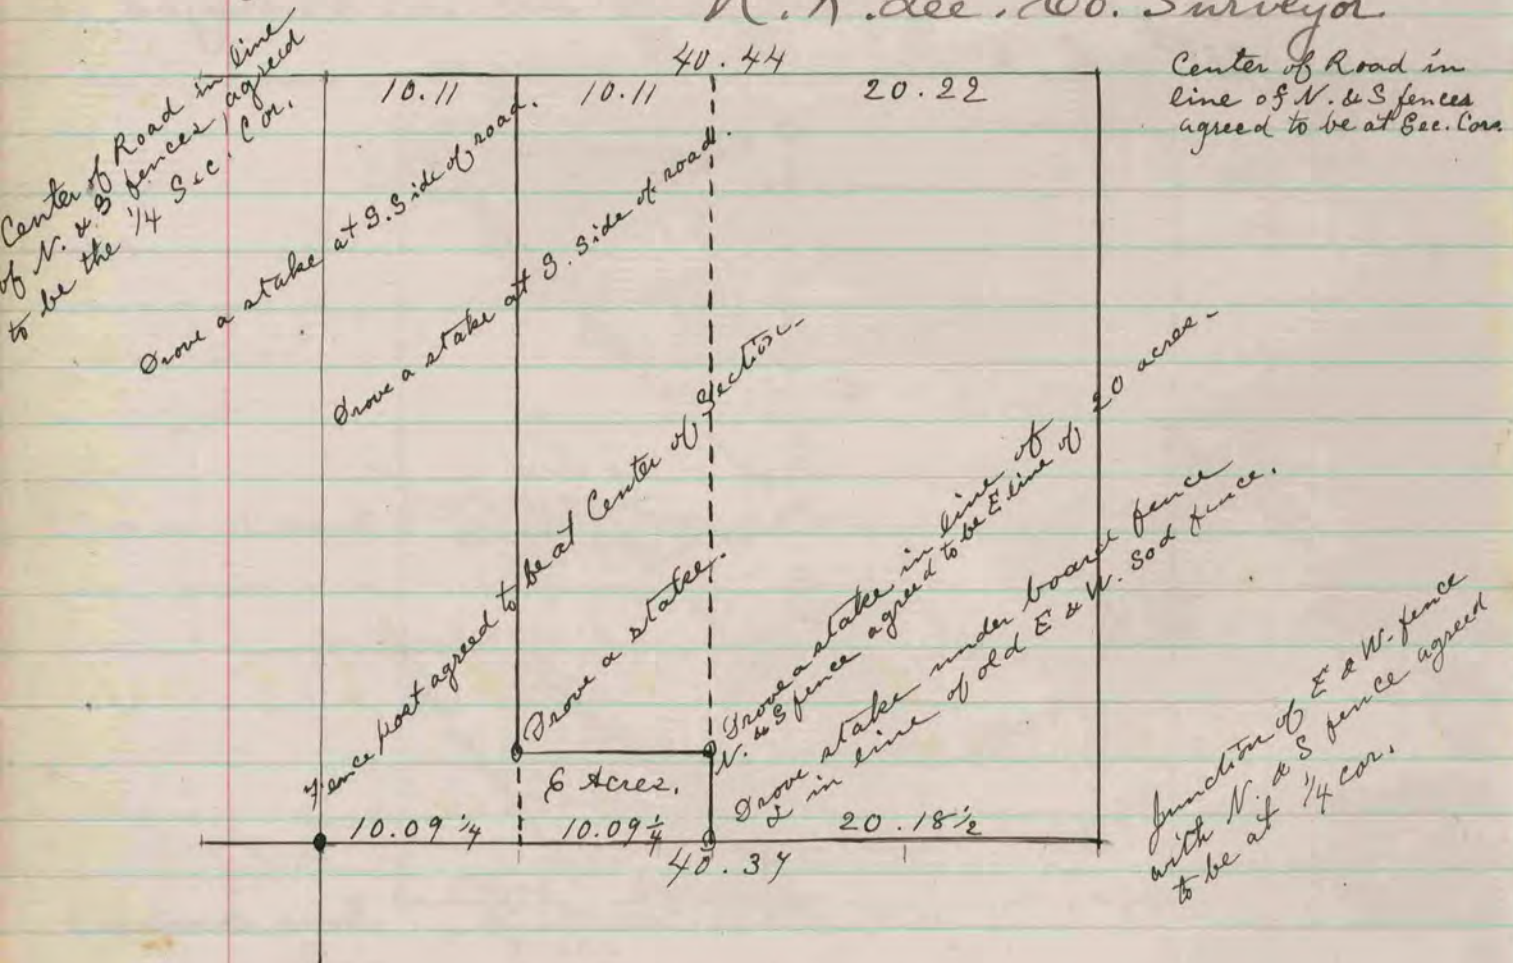 Co. Surveyor.
40.44
10.11
10.11
20.22
Center of Road in
line of N. & S fences
agreed to be at Sec. Cor.
Center of Road in line
of N. & S fences, agreed
to be the 1/4 Sec. Cor.
Drove a stake at S. Side of road.
Drove a stake at S. Side of road.
Fence post agreed to be at Center of Section.
Drove a stake.
Drove a stake in line of
N. & S fence agreed to be E line of 20 acres.
Drove stake under board fence
& in line of old E & W. Sod fence.
Junction of E & W. fence
with N. & S fence agreed
to be at 1/4 cor.
6 Acres.
10.09 1/4
10.09 1/4
20.18 1/2
40.37